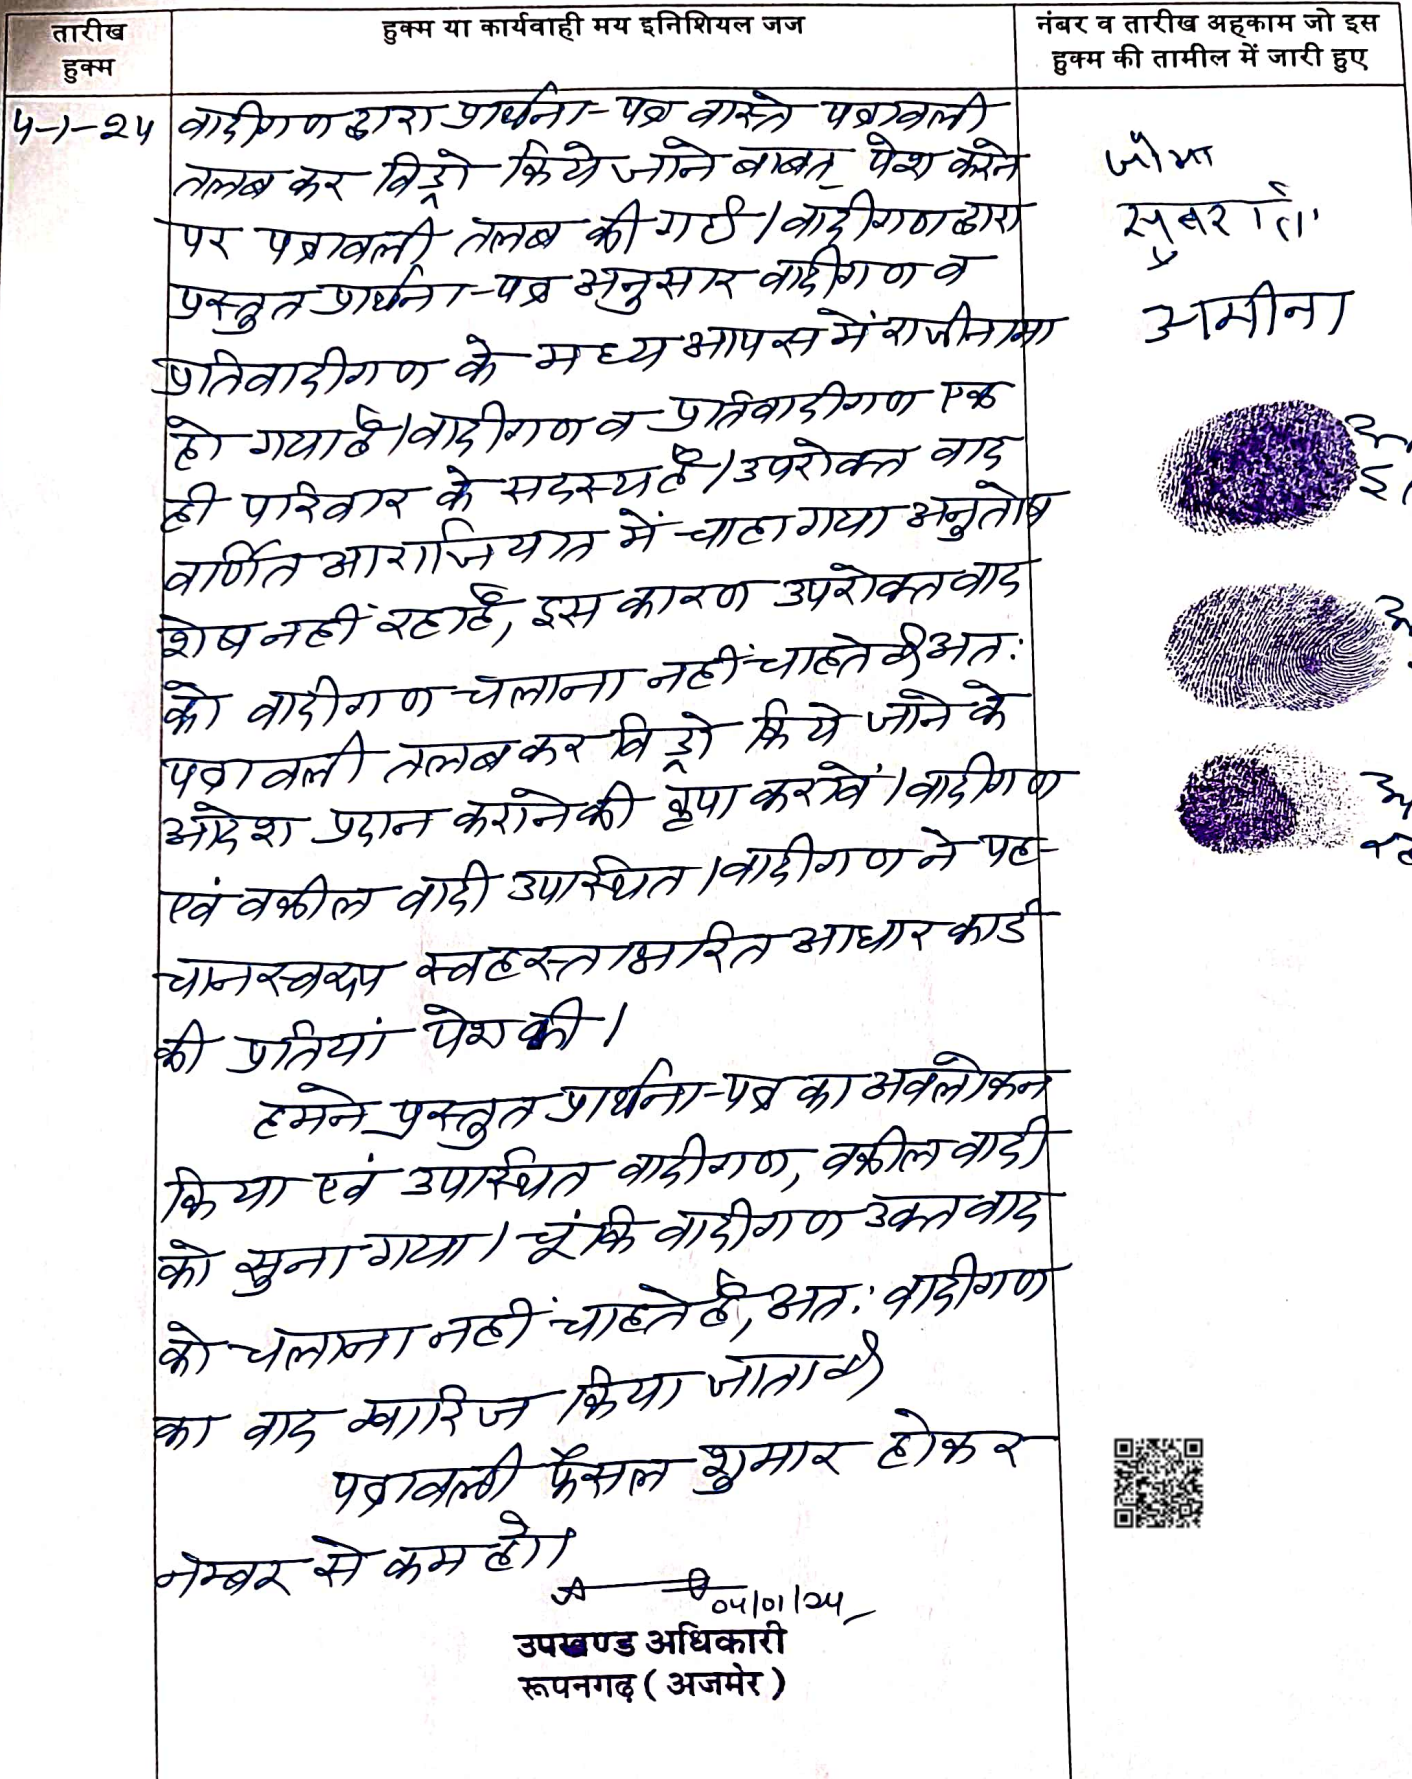 तारीख
हुक्म
हुक्म या कार्यवाही मय इनिशियल जज
नंबर व तारीख अहकाम जो इस
हुक्म की तामील में जारी हुए
4-1-24
वादीगण द्वारा प्रार्थना-पत्र वास्ते पत्रावली
तलब कर विड्रो किये जाने बाबत् पेश करने
पर पत्रावली तलब की गई। वादीगण द्वारा
प्रस्तुत प्रार्थना-पत्र अनुसार वादीगण व
प्रतिवादीगण के मध्य आपस में राजीनामा
हो गया है। वादीगण व प्रतिवादीगण एक
ही परिवार के सदस्य है। उपरोक्त वाद
वर्णित आराजियात में चाहा गया अनुतोष
शेष नहीं रहा है, इस कारण उपरोक्त वाद
को वादीगण चलाना नहीं चाहते है। अत:
पत्रावली तलब कर विड्रो किये जाने के
आदेश प्रदान कराने की कृपा करावें। वादीगण
एवं वकील वादी उपस्थित। वादीगण ने पह-
चान स्वरूप स्वहस्ताक्षरित आधार कार्ड
की प्रतियां पेश की।
हमने प्रस्तुत प्रार्थना-पत्र का अवलोकन
किया एवं उपस्थित वादीगण, वकील वादी
को सुना गया। चूंकि वादीगण उक्त वाद
को चलाना नहीं चाहते है, अत: वादीगण
का वाद खारिज किया जाता है।
पत्रावली फैसल शुमार होकर
नम्बर से कम हो।
04/01/24
उपखण्ड अधिकारी
रूपनगढ़ (अजमेर)
अमीना